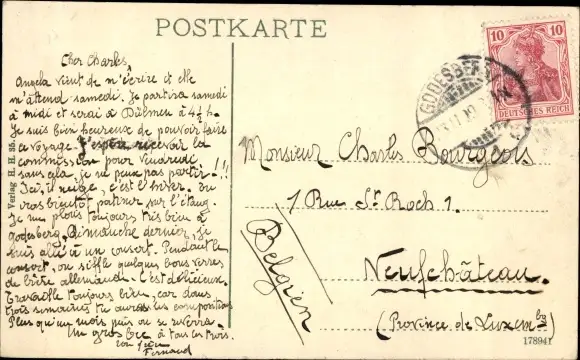 POSTKARTE
Cher Charles,
Angela vient de m'écrire et elle
m'attend samedi. Je partirai samedi
à midi et serai à Dülmen à 4½ h.
Je suis bien heureux de pouvoir faire
ce voyage. J'espère recevoir la
commission pour vendredi
sans cela, je ne peux pas partir!!!
Ici, il neige, c'est l'hiver. On
ira bientôt patiner sur l'étang.
Je me plais toujours très bien à
Godesberg. Dimanche dernier, je
suis allé à un concert. Pendant le
concert, on siffle quelques bons verres
de bière allemande. C'est délicieux.
Travaille toujours bien, car dans
trois semaines tu auras les compositions
Plus qu'un mois puis on se reverra.
Un gros bec à tous les trois.
ton frère
Fernand
Verlag H. H. 35.
10 10
DEUTSCHES REICH
GODESBERG
Monsieur Charles Bourgeois
1 Rue St Roch 1.
Belgien
Neufchâteau.
(Province de Luxembourg)
178941